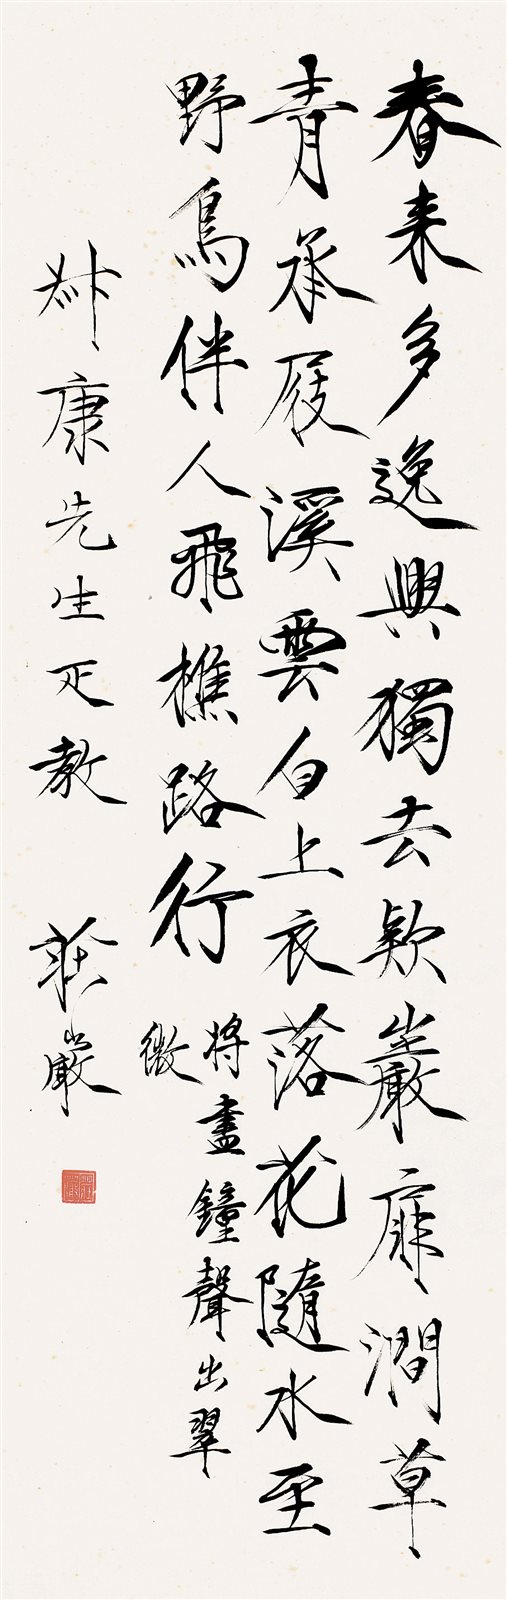 春来多逸興獨去欵巖扉澗草
青承屐溪雲白上衣落花隨水至
野鳥伴人飛樵路行
將盡鐘聲出翠
微
叔康先生疋教
莊嚴